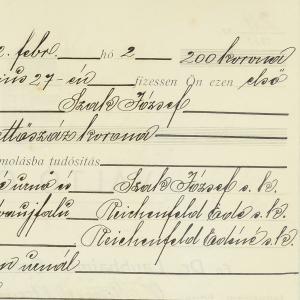 2. febr. hó 2 200 korona
ius 27-én fizessen Ön ezen első
Szak József
ettőszáz korona
molásba tudósítás
é urnő is Szak József s. k.
oraujfalu Reichenfeld Ede s. k.
Reichenfeld Edéné s. k.
n urnál